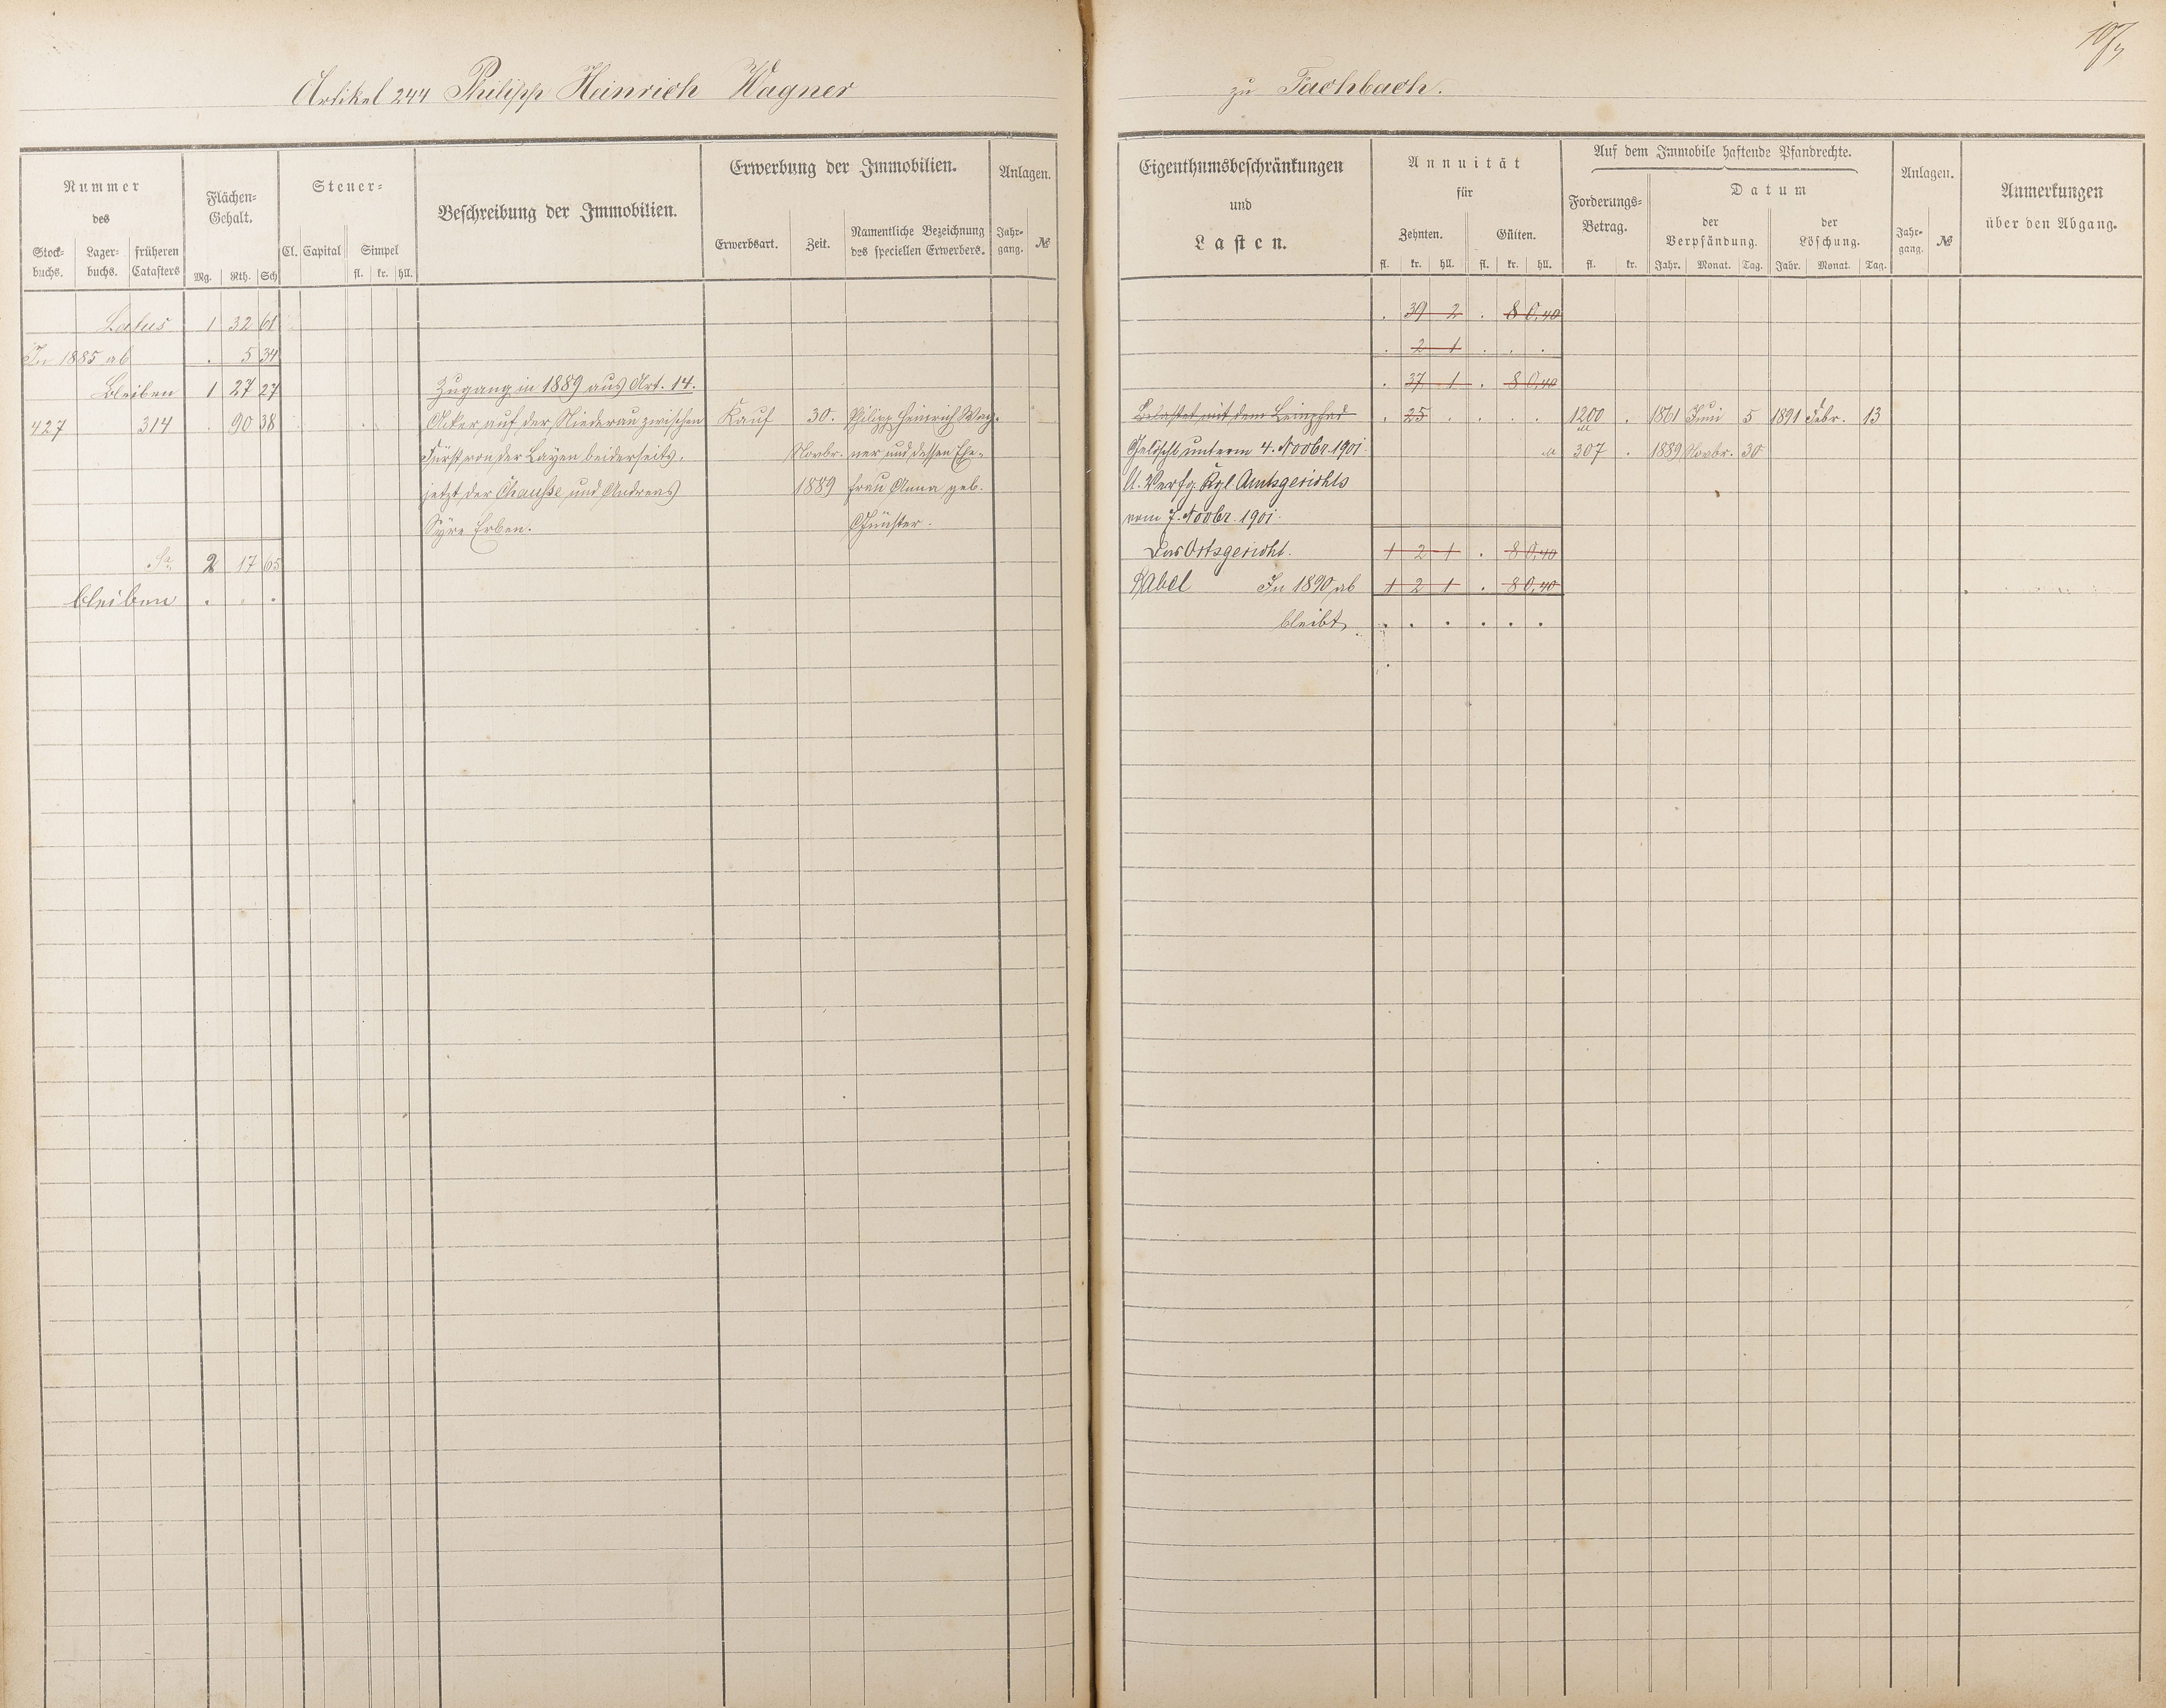 Artikel 244 Philipp Heinrich Wagner
zu Fachbach.
Nummer
des
Stock-
buchs.
Lager-
buchs.
früheren
Catasters
Flächen-
Gehalt.
Mg. Rth. Sch
Steuer-
Cl. Capital Simpel
fl. kr. hll.
Beschreibung der Immobilien.
Erwerbung der Immobilien.
Erwerbsart. Zeit.
Namentliche Bezeichnung
des speciellen Erwerbers.
Anlagen.
Jahr-
gang.
№
Latus 1 32 61
In 1885 ab . 5 34
Bleiben 1 27 27 Zugang in 1889 aus Art. 14.
427 314 . 90 38 Acker auf der Niederau zwischen Kauf 30. Philipp Heinrich Wag-
Fürst von der Layen beiderseits, Novbr. ner und dessen Ehe-
jetzt der Chaussee und Andreas 1889 frau Anna geb.
Syre Erben.
Sa. 2 17 65
bleiben . . .
Eigenthumsbeschränkungen
und
Lasten.
Annuität
für
Zehnten. Gülten.
fl. kr. hll. fl. kr. hll.
Auf dem Immobile haftende Pfandrechte.
Forderungs-
Betrag.
fl. kr.
Datum
der
Verpfändung.
Jahr. Monat. Tag.
der
Löschung.
Jahr. Monat. Tag.
Anlagen.
Jahr-
gang.
№
Anmerkungen
über den Abgang.
. 39 2 . 8 0,40
. 2 1 . . .
. 37 1 . 8 0,40
Belastet mit dem Leinpfad . 25 . . . . 1200 . 1861 Juni 5 1891 Febr. 13
Gelöscht unterm 4. Novbr. 1901. M 307 . 1889 Novbr. 30
U. Verfg. Kgl. Amtsgerichts
vom 7. Novbr. 1901.
Das Ortsgericht. 1 2 1 . 8 0,40
Abel In 1890 ab 1 2 1 . 8 0,40
bleibt . . . . . .